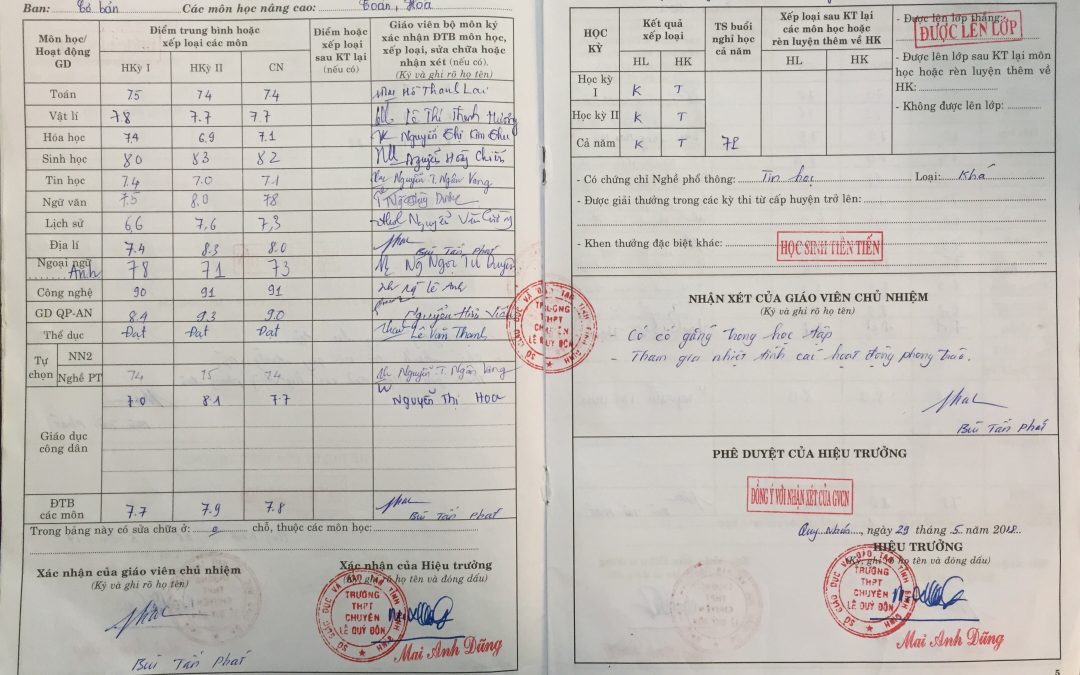 Ban: Cơ bản Các môn học nâng cao: Toán, Hóa
Môn học/ Hoạt động GD
Điểm trung bình hoặc xếp loại các môn
HKỳ I HKỳ II CN
Điểm hoặc xếp loại sau KT lại (nếu có)
Giáo viên bộ môn ký xác nhận ĐTB môn học, xếp loại, sửa chữa hoặc nhận xét (nếu có).
(Ký và ghi rõ họ tên)
Toán 75 74 74 Hồ Thanh Lai
Vật lí 7.8 7.7 7.7 Lê Thị Thanh Hương
Hóa học 7.4 6,9 7.1 Nguyễn Thị Kim Thu
Sinh học 80 83 82 Nguyễn Hoàng Chiến
Tin học 7.4 7.0 7.1 Nguyễn T. Ngân Vang
Ngữ văn 7.5 8.0 78
Lịch sử 6,6 7,6 7,3 Nguyễn Văn
Địa lí 7.4 8.3 8.0 Bùi Tấn Phát
Ngoại ngữ Anh 78 71 73 Ng Ngọc Tú Duyên
Công nghệ 90 91 91 Lê Anh
GD QP-AN 8.4 9.3 9.0 Nguyễn
Thể dục Đạt Đạt Đạt Lê Văn Thanh
Tự chọn NN2
Nghề PT 74 75 74 Nguyễn T. Ngân Vang
7.0 8.1 7.7 Nguyễn Thị Hoa
Giáo dục công dân
ĐTB các môn 7.7 7.9 7.8 Bùi Tấn Phát
Trong bảng này có sửa chữa ở: 0 chỗ, thuộc các môn học:
Xác nhận của giáo viên chủ nhiệm
(Ký và ghi rõ họ tên)
Bùi Tấn Phát
Xác nhận của Hiệu trưởng
(Ký, ghi rõ họ tên và đóng dấu)
SỞ GIÁO DỤC VÀ ĐÀO TẠO TỈNH BÌNH ĐỊNH
TRƯỜNG
THPT
CHUYÊN
LÊ QUÝ ĐÔN
Mai Anh Dũng
SỞ GIÁO DỤC VÀ ĐÀO TẠO TỈNH BÌNH ĐỊNH
TRƯỜNG
THPT
CHUYÊN
LÊ QUÝ ĐÔN
HỌC KỲ
Kết quả xếp loại
HL HK
TS buổi nghỉ học cả năm
Xếp loại sau KT lại các môn học hoặc rèn luyện thêm về HK
HL HK
Học kỳ I K T
Học kỳ II K T
Cả năm K T
- Được lên lớp thẳng:
ĐƯỢC LÊN LỚP
- Được lên lớp sau KT lại môn
học hoặc rèn luyện thêm về
HK:
- Không được lên lớp:
- Có chứng chỉ Nghề phổ thông: Tin học Loại: Khá
- Được giải thưởng trong các kỳ thi từ cấp huyện trở lên:
- Khen thưởng đặc biệt khác:
HỌC SINH TIÊN TIẾN
NHẬN XÉT CỦA GIÁO VIÊN CHỦ NHIỆM
(Ký và ghi rõ họ tên)
- Có cố gắng trong học tập
- Tham gia nhiệt tình các hoạt động phong trào.
Bùi Tấn Phát
PHÊ DUYỆT CỦA HIỆU TRƯỞNG
ĐỒNG Ý VỚI NHẬN XÉT CỦA GVCN
Quy Nhơn, ngày 29 tháng 5 năm 2018
HIỆU TRƯỞNG
(Ký, ghi rõ họ tên và đóng dấu)
SỞ GIÁO DỤC VÀ ĐÀO TẠO TỈNH BÌNH ĐỊNH
TRƯỜNG
THPT
CHUYÊN
LÊ QUÝ ĐÔN
Mai Anh Dũng
5